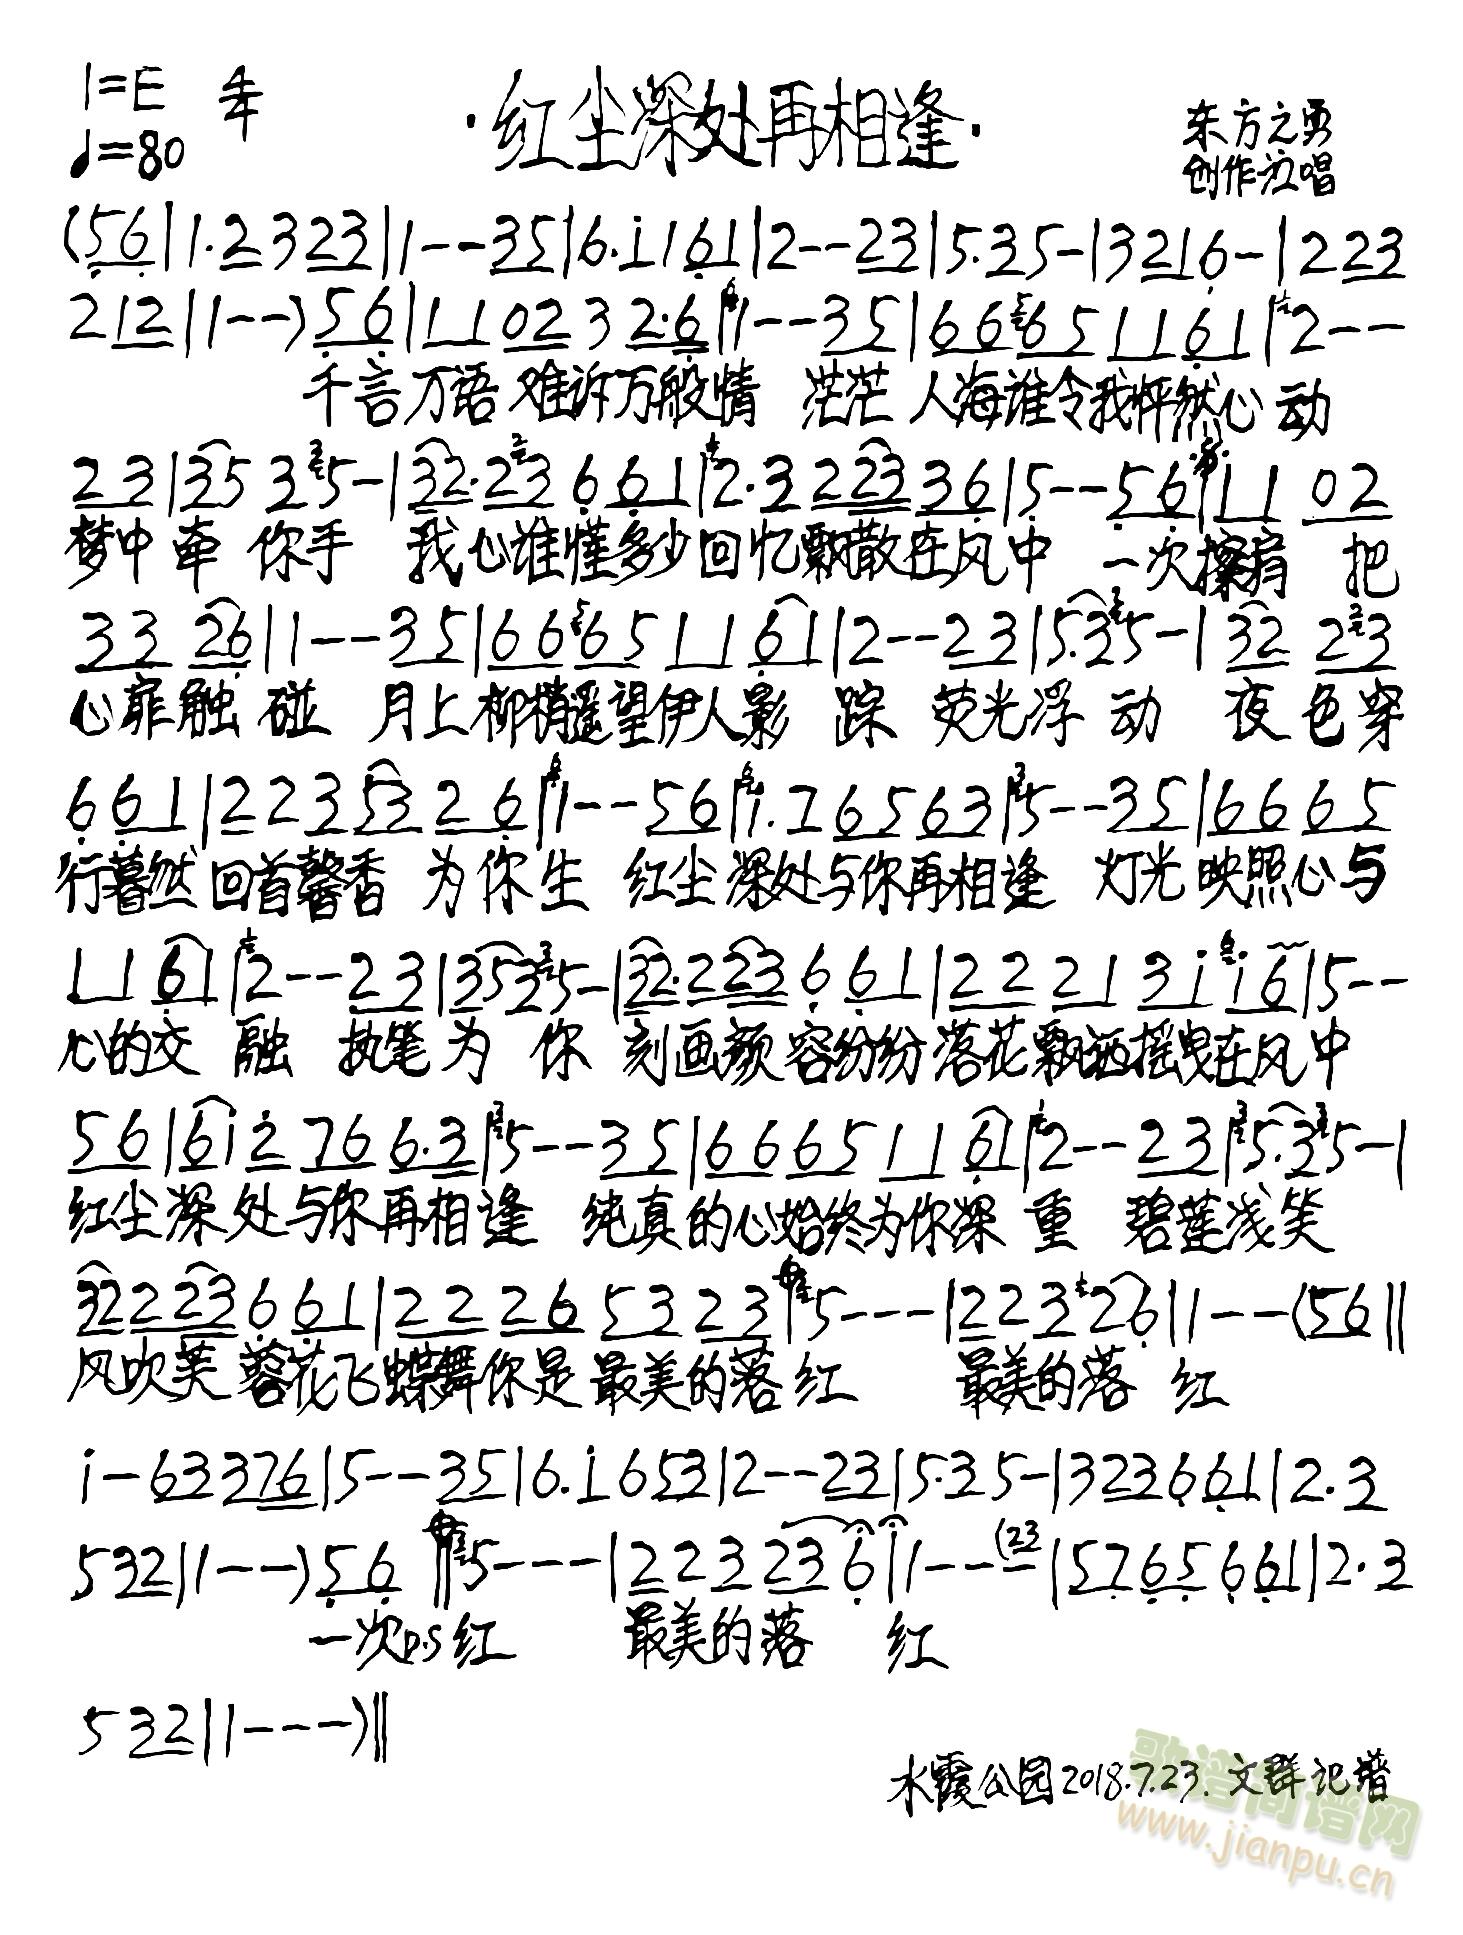 1=E 4/4
·红尘深处再相逢·
♩=80
东方之勇
创作演唱
(56|1·2323|1--35|6·i161|2--23|5·35-|3216-|2223
212|1--)56|110232·6|1--35|66651161|2--
千言万语难诉万般情 茫茫人海谁令我怦然心动
23|3535-|32·23661|2·322336|5--56|1102
梦中牵你手 我心谁懂多少回忆飘散在风中 一次擦肩 把
3326|1--35|66651161|2--23|5·35-|3223
心扉触碰 月上柳梢遥望伊人影踪 荧光浮动 夜色穿
661|2235326|1--56|i·76563|5--35|6665
行蓦然回首馨香为你生 红尘深处与你再相逢 灯光映照心与
1161|2--23|3535-|32·223661|22213ii6|5--
心的交融 执笔为你 刻画颜容纷纷落花飘洒摇曳在风中
56|6i2766·3|5--35|66651161|2--23|5·35-|
红尘深处与你再相逢 纯真的心始终为你深重 碧莲浅笑
32223661|22265323|5---|22326|1--(56||
风吹芙蓉花飞蝶舞你是最美的落红 最美的落红
i-633276|5--35|6·i653|2--23|5·35-|323661|2·3
532|1--)56||5---|223236|1--(23|5765661|2·3
一次D.S红 最美的落 红
532|1---)||
水霞公园2018.7.23.文群记谱
歌谱简谱网
www.jianpu.cn